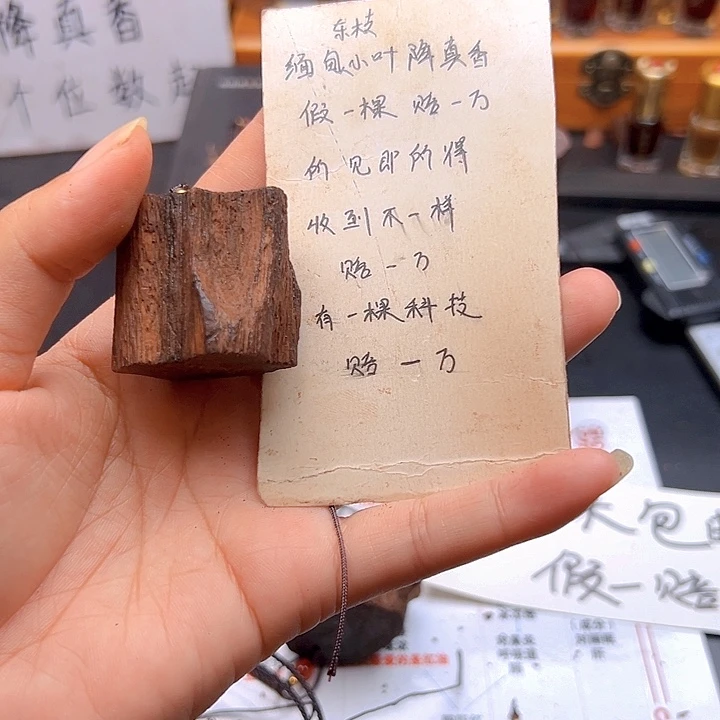 降真香
个位数起
东枝
缅甸小叶降真香
假一棵赔一万
的见即的得
收到不一样
赔一万
有一棵科技
赔一万
大包
假一赔